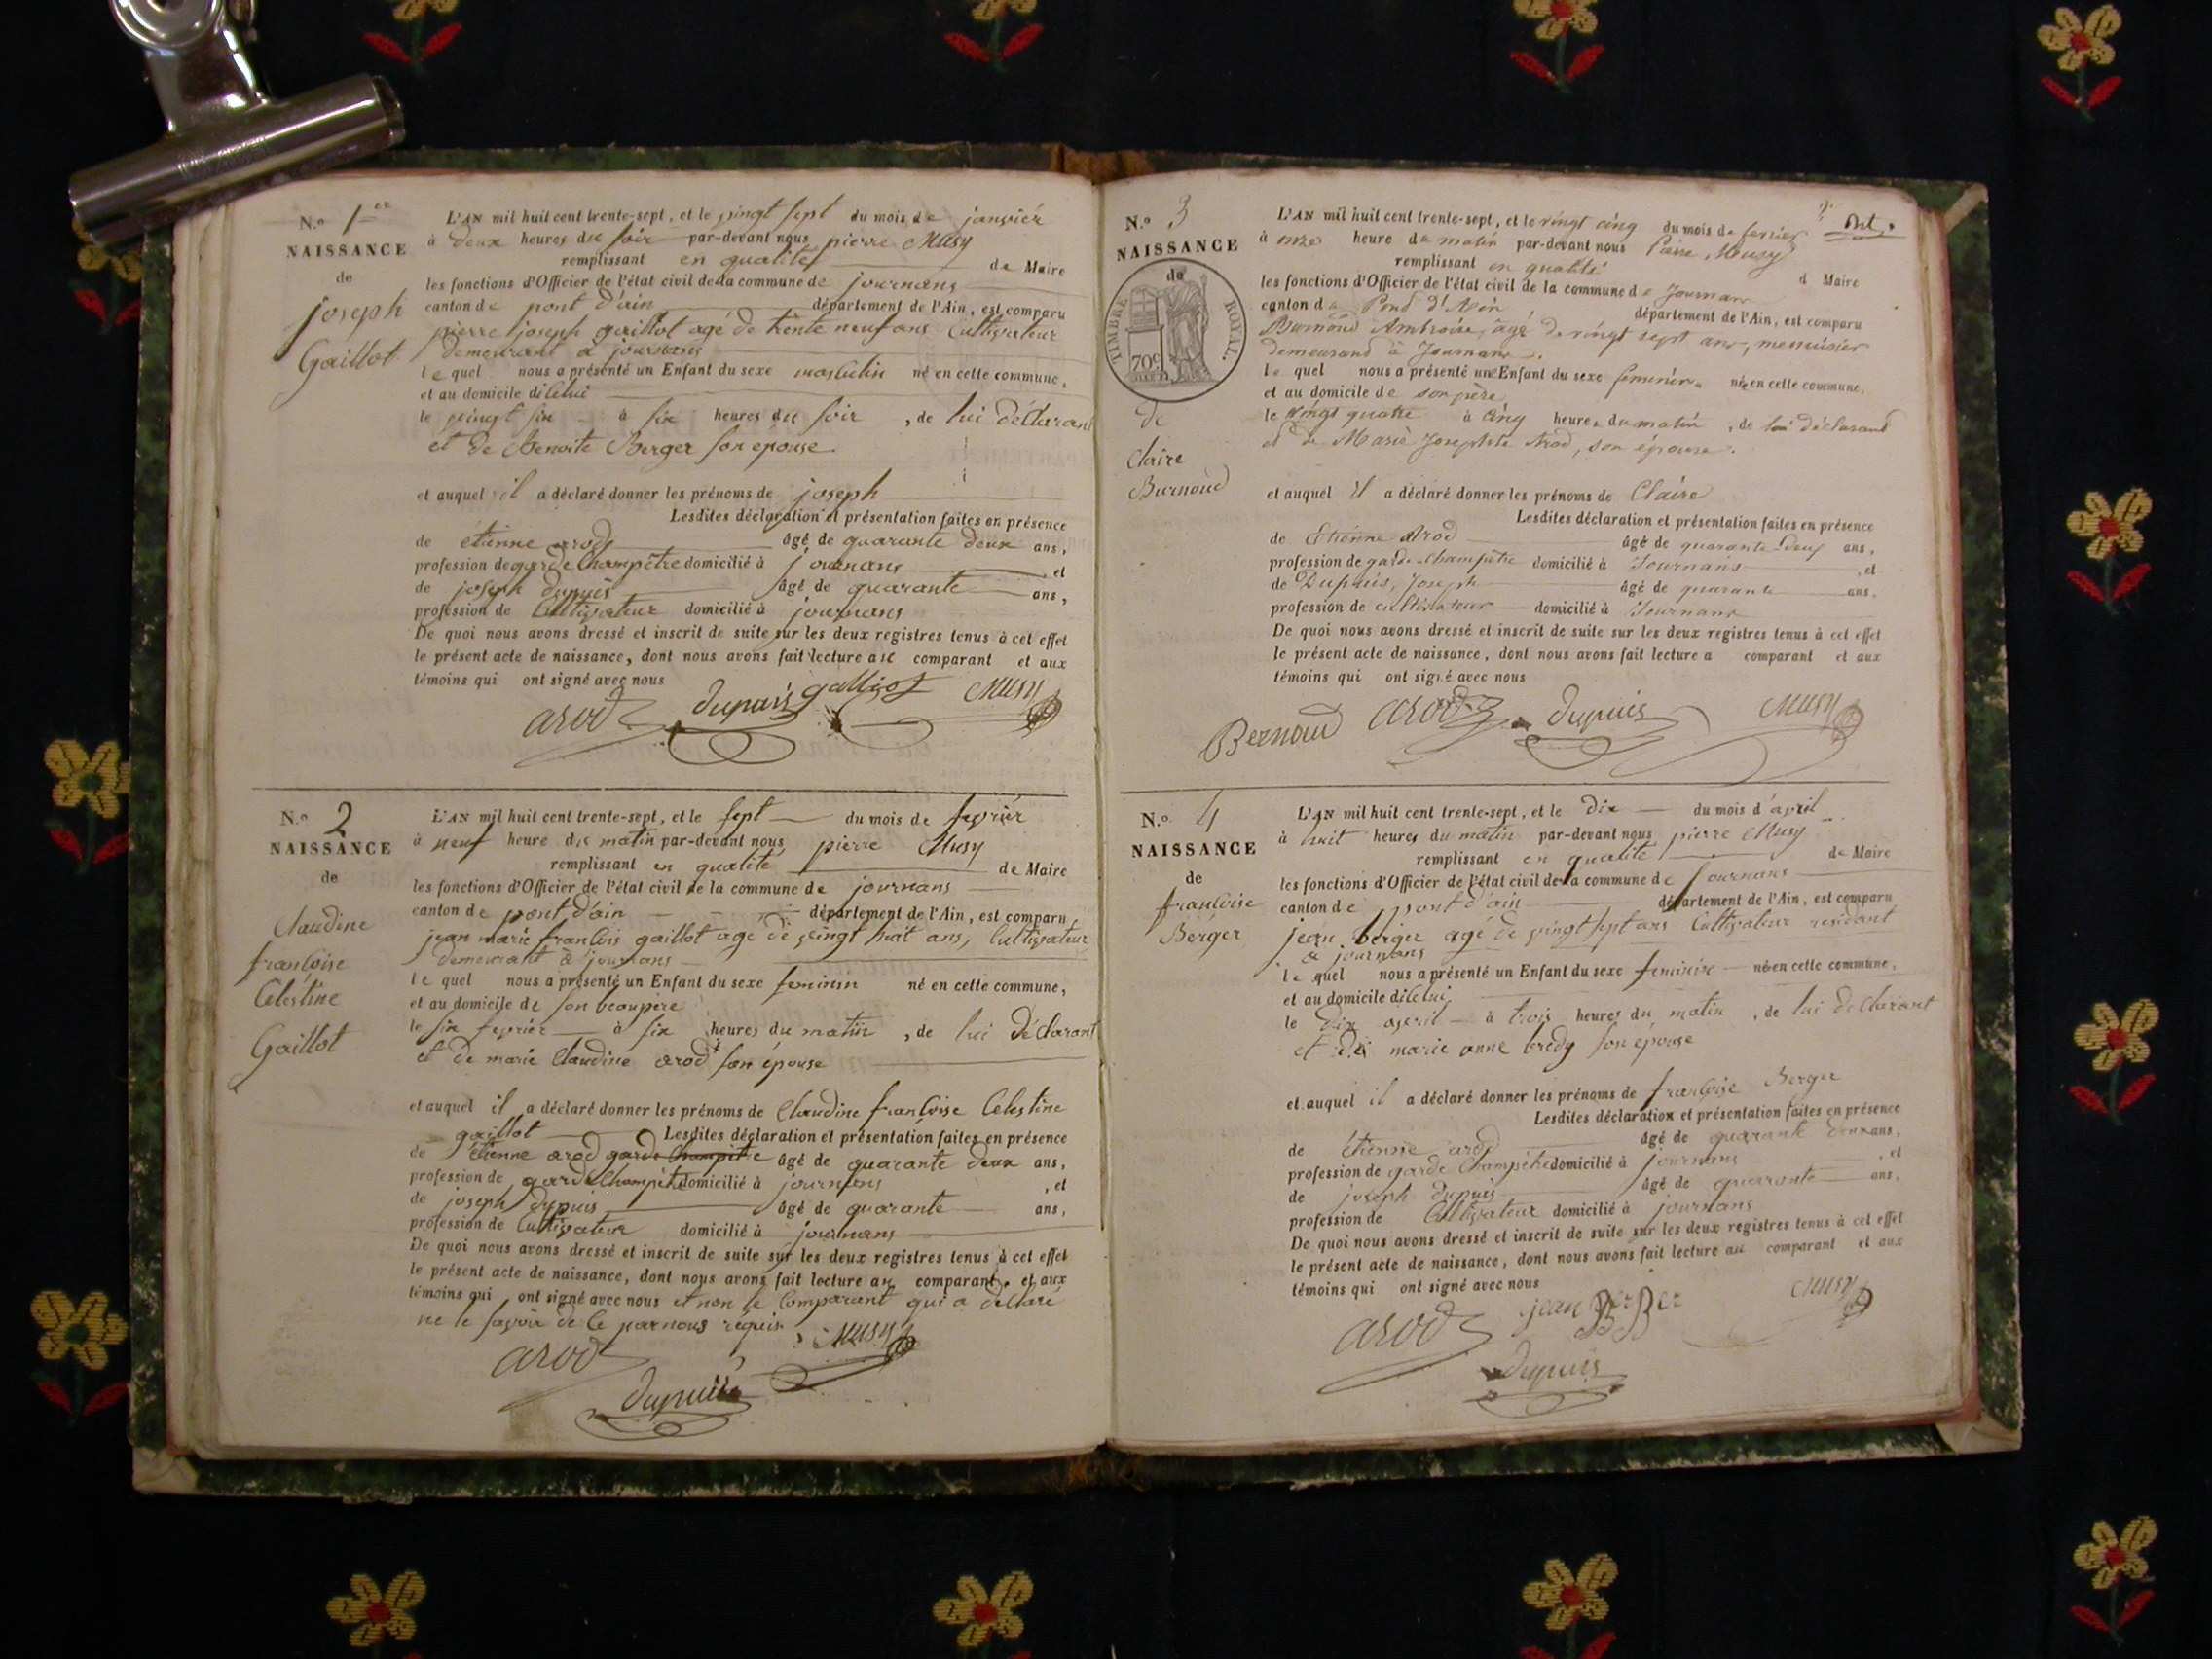 N.o 1er
NAISSANCE
de
joseph
Gaillot
L'AN mil huit cent trente-sept, et le vingt sept du mois de janvier
à deux heures du soir par-devant nous pierre Musy
remplissant en qualité de Maire
les fonctions d'Officier de l'état civil de la commune de journans
canton de pont d'ain département de l'Ain, est comparu
pierre joseph gaillot agé de trente neuf ans Cultivateur
demeurant a journans
le quel nous a présenté un Enfant du sexe masculin né en cette commune,
et au domicile dicelui
le vingt six à six heures du soir, de lui déclarant
et de Benoite Berger son epouse
et auquel il a déclaré donner les prénoms de joseph
Lesdites déclaration et présentation faites en présence
de étienne arod âgé de quarante deux ans,
profession de garde Champêtre domicilié à journans, et
de joseph dupuis âgé de quarante ans,
profession de Cultivateur domicilié à journans
De quoi nous avons dressé et inscrit de suite sur les deux registres tenus à cet effet
le présent acte de naissance, dont nous avons fait lecture au comparant et aux
témoins qui ont signé avec nous
arod dupuis galliot Musy
N.o 2
NAISSANCE
de
Claudine
francoise
Celestine
Gaillot
L'AN mil huit cent trente-sept, et le sept du mois de fevrier
à neuf heure du matin par-devant nous pierre Musy
remplissant en qualité de Maire
les fonctions d'Officier de l'état civil de la commune de journans
canton de pont d'ain département de l'Ain, est comparu
jean marie francois gaillot age de vingt huit ans, Cultivateur
demeurant à journans
le quel nous a présenté un Enfant du sexe feminin né en cette commune,
et au domicile de son beaupere
le six fevrier à six heures du matin, de lui déclarant
et de marie Claudine arod son épouse
et auquel il a déclaré donner les prénoms de Claudine francoise Celestine
gaillot Lesdites déclaration et présentation faites en présence
de étienne arod garde Champêtre âgé de quarante deux ans,
profession de garde Champêtre domicilié à journans, et
de joseph dupuis âgé de quarante ans,
profession de Cultivateur domicilié à journans
De quoi nous avons dressé et inscrit de suite sur les deux registres tenus à cet effet
le présent acte de naissance, dont nous avons fait lecture au comparant, et aux
témoins qui ont signé avec nous et non le Comparant qui a déclaré
ne le savoir de ce par nous requis Musy
arod
dupuis
N.o 3
NAISSANCE
de
TIMBRE ROYAL.
70c
de
Claire
Burnoud
L'AN mil huit cent trente-sept, et le vingt cinq du mois de fevrier
à onze heure du matin par-devant nous Pierre Musy
remplissant en qualité d Maire
les fonctions d'Officier de l'état civil de la commune de Journans
canton de Pond d'Ain département de l'Ain, est comparu
Burnoud Ambroise, âgé de vingt sept ans, menuisier
demeurand à Journans.
le quel nous a présenté une Enfant du sexe feminin née en cette commune,
et au domicile de son père
le vingt quatre à cinq heures du matin, de lui déclarand
et de Marie Josephte Arod, son épouse.
et auquel il a déclaré donner les prénoms de Claire
Lesdites déclaration et présentation faites en présence
de Etiénne Arod âgé de quarante deux ans,
profession de garde champêtre domicilié à Journans, et
de Dupuis, Joseph âgé de quarante ans,
profession de cultivateur domicilié à Journans
De quoi nous avons dressé et inscrit de suite sur les deux registres tenus à cet effet
le présent acte de naissance, dont nous avons fait lecture a comparant et aux
témoins qui ont signé avec nous
Bernoud arod dupuis Musy
N.o 4
NAISSANCE
de
francoise
Bérger
L'AN mil huit cent trente-sept, et le dix du mois d'avril
à huit heures du matin par-devant nous pierre Musy
remplissant en qualité de Maire
les fonctions d'Officier de l'état civil de la commune de journans
canton de pont d'ain département de l'Ain, est comparu
jean berger agé de vingt sept ans Cultivateur residant
à journans
le quel nous a présenté un Enfant du sexe feminine née en cette commune,
et au domicile dicelui
le dix avril à trois heures du matin, de lui déclarant
et de marie anne bredy son épouse
et auquel il a déclaré donner les prénoms de francoise Berger
Lesdites déclaration et présentation faites en présence
de étienne arod âgé de quarante deux ans,
profession de garde Champêtre domicilié à journans, et
de joseph dupuis âgé de quarante ans,
profession de Cultivateur domicilié à journans
De quoi nous avons dressé et inscrit de suite sur les deux registres tenus à cet effet
le présent acte de naissance, dont nous avons fait lecture au comparant et aux
témoins qui ont signé avec nous
arod jean Musy
dupuis